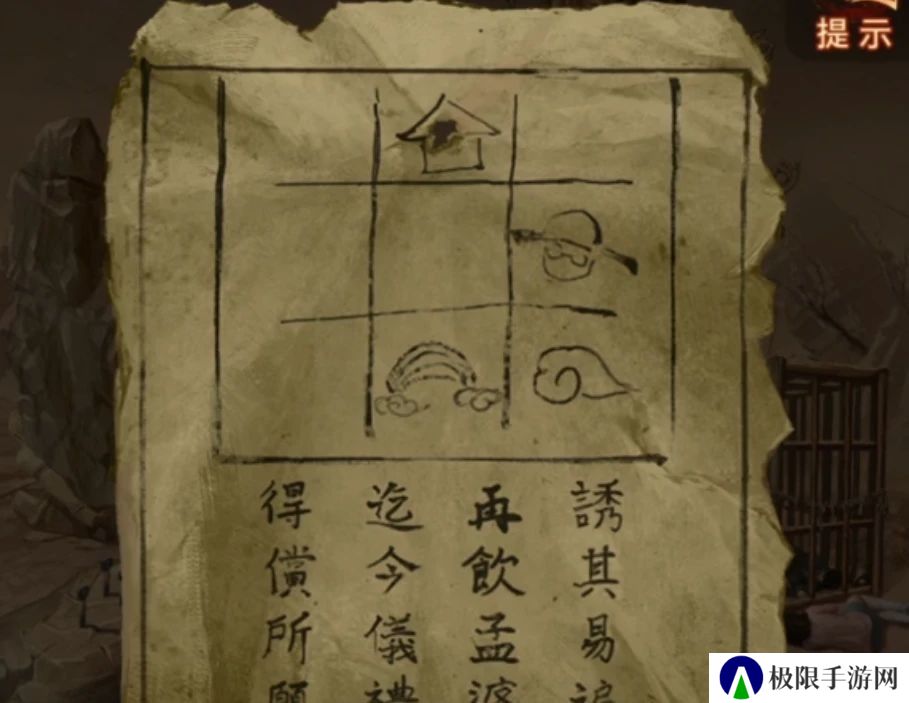 提示
誘其易
再飲孟婆
迄今儀禮
得償所願
极限手游网